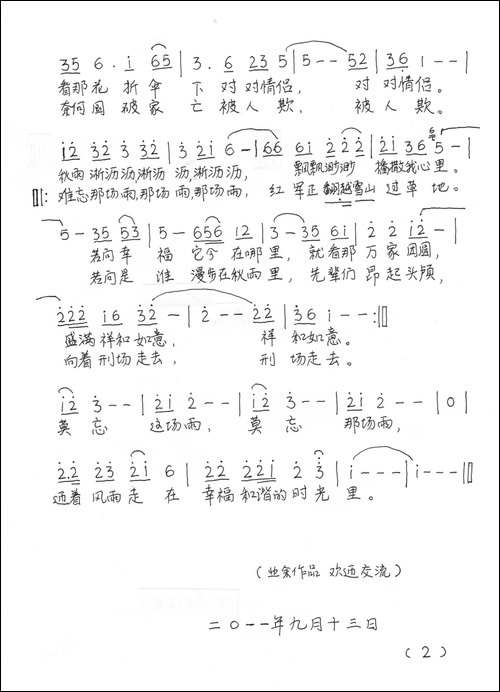 35 6 . i 65 | 3 . 6 23 5 | 5 - - 52 | 36 1 - - |
看那花 折伞 下 对对情侣, 对 对情侣。
奈何国 破家 亡 被人欺, 被人欺。
i2 32 3 32 | 3 2i 6 - | 66 6i 2 22 | 2i 36 5 - |
秋雨 淅沥沥,淅沥 沥,淅沥沥, 飘飘渺渺 播撒我心里。
难忘那场雨,那场 雨,那场雨, 红军正翻越雪山 过草地。
5 - 35 53 | 5 - 656 12 | 3 - 35 6i | 2 2 i2 - |
若问幸 福 它今在哪里, 就看那 万家团圆,
若问是 谁 漫步在秋雨里, 先辈们 昂起头颅,
222 i6 32 - | 2 - - 22 | 36 i - - :||
盛满祥和如意, 祥和如意。
向着刑场走去, 刑场走去。
i2 3 - - | 2i 2 - - | i2 3 - - | 2i 2 - - | 0 |
莫忘 这场雨, 莫忘 那场雨,
2.2 23 2i 6 | 22 22i 2 3 | i - - - | i - - - ||
迎着风雨走 在 幸福和谐的时光 里。
(业余作品 欢迎交流)
二〇一一年九月十三日
(2)